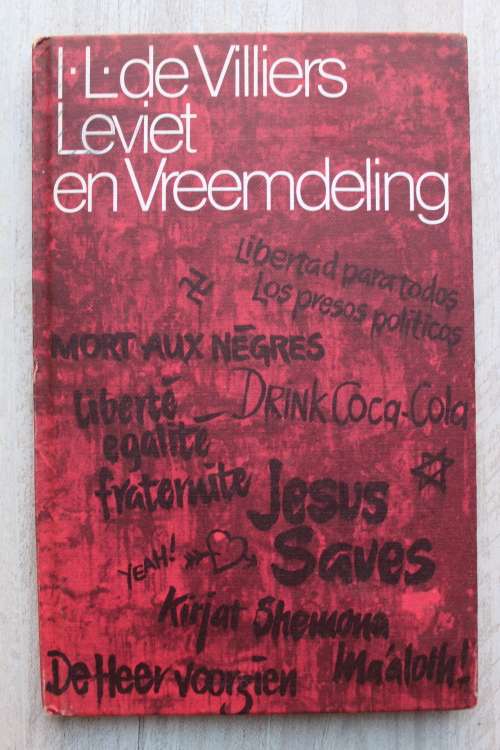 I.L.de Villiers
Leviet
en Vreemdeling
Libertad para todos
Los presos politicos
MORT AUX NÉGRES
Liberté
egalité
fraternite
DRINK Coca-Cola
Jesus
Saves
YEAH!
Kirjat Shemona
Ma'aloth!
De Heer voorzien